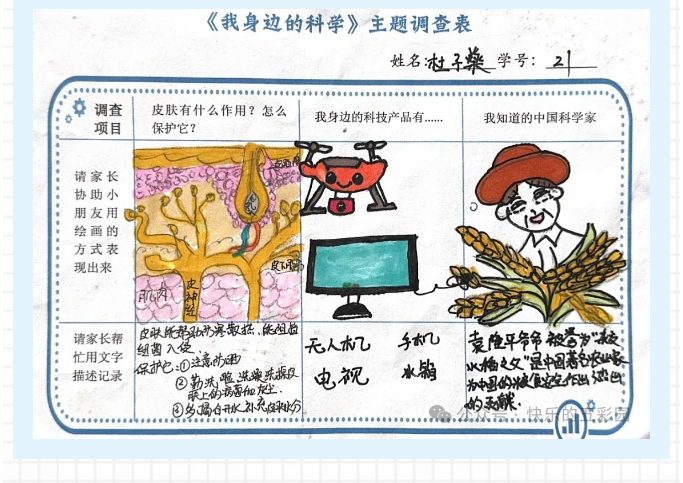 《我身边的科学》主题调查表
姓名:杜子燊 学号: 21
调查
项目
皮肤有什么作用？怎么
保护它？
我身边的科技产品有......
我知道的中国科学家
请家长
协助小
朋友用
绘画的
方式表
现出来
肌肉
皮神经
请家长帮
忙用文字
描述记录
皮肤能帮助防寒散热，能阻挡
细菌入侵
保护它:①注意防晒
②勤洗脸、洗澡洗掉皮
肤上的病菌和灰尘.
③多喝白开水补充皮肤水分
无人机 手机
电视 冰箱
袁隆平爷爷 被誉为“杂交
水稻之父”是中国著名农业家
为中国的粮食安全作出杰出
的贡献.
公众号·快乐的五彩园